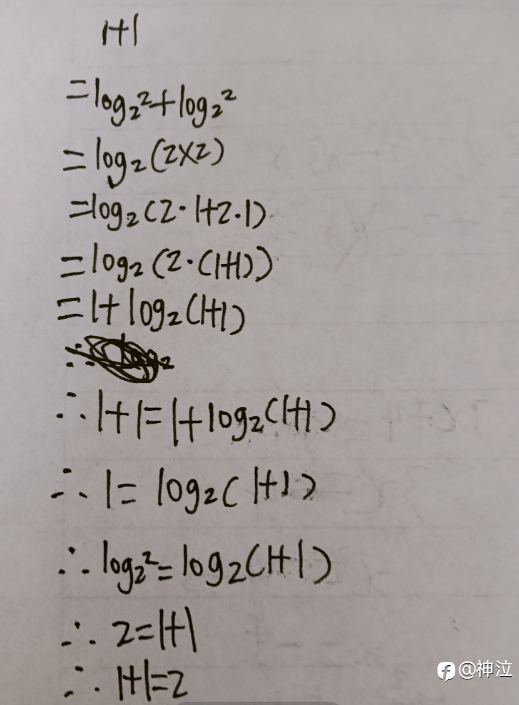 1+1
=log₂²+log₂²
=log₂(2×2)
=log₂(2·1+2·1)
=log₂(2·(1+1))
=1+log₂(1+1)
∴1+1=1+log₂(1+1)
∴1=log₂(1+1)
∴log₂²=log₂(1+1)
∴2=1+1
∴1+1=2
@神泣